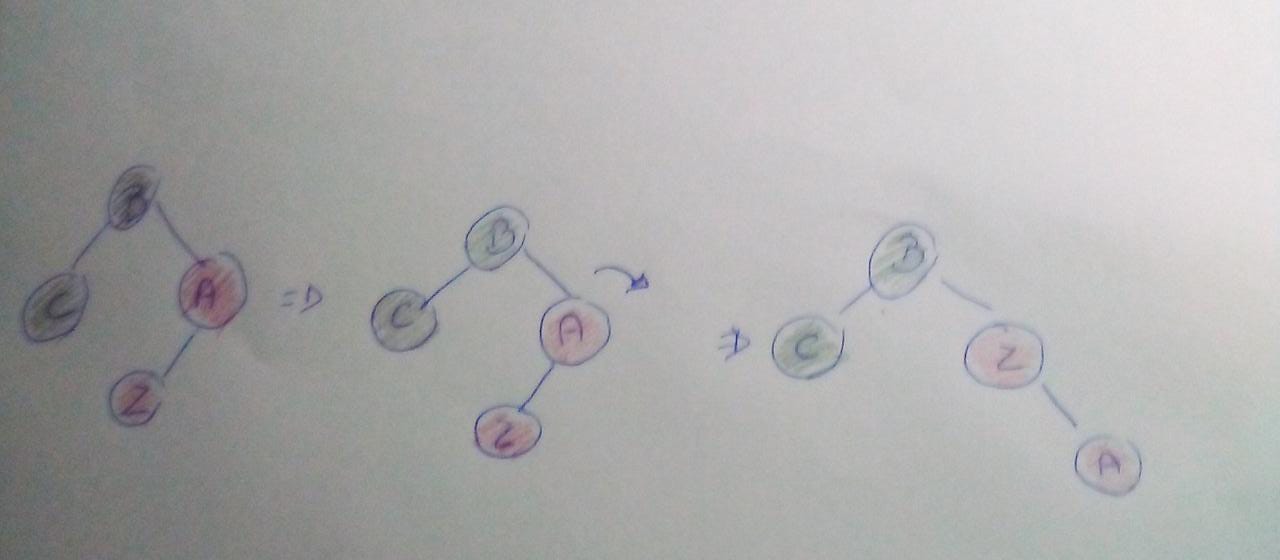 B
C
A
Z
⇒
B
C
A
Z
⇒
B
C
Z
A